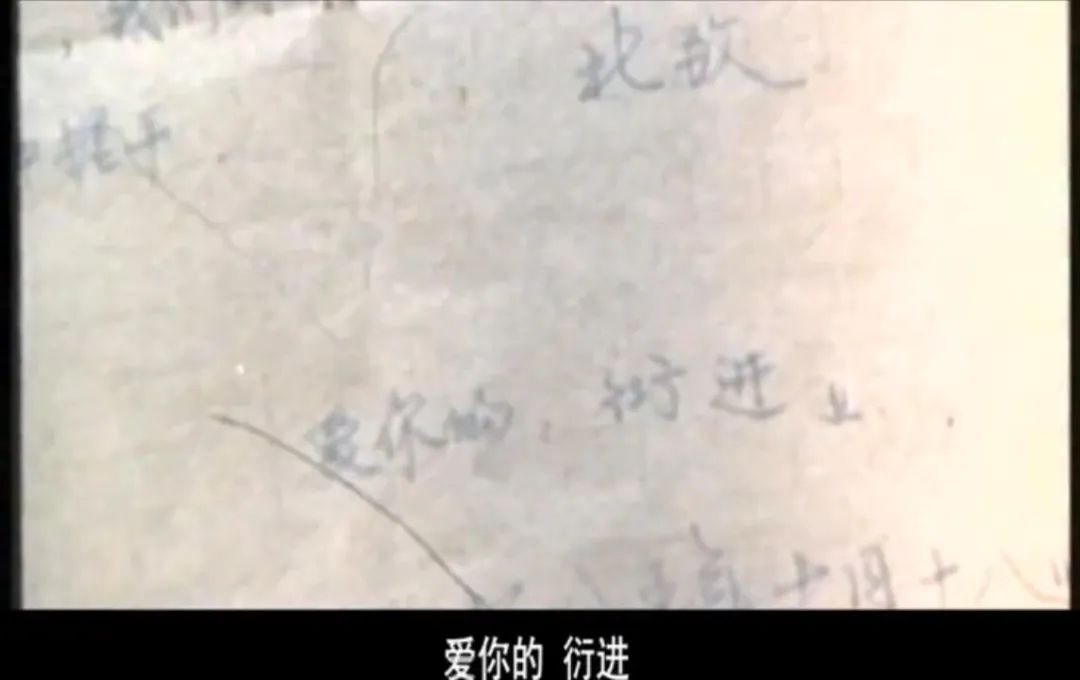 我们
握手
北敬
爱你的，衍进上.
十月十八
爱你的 衍进